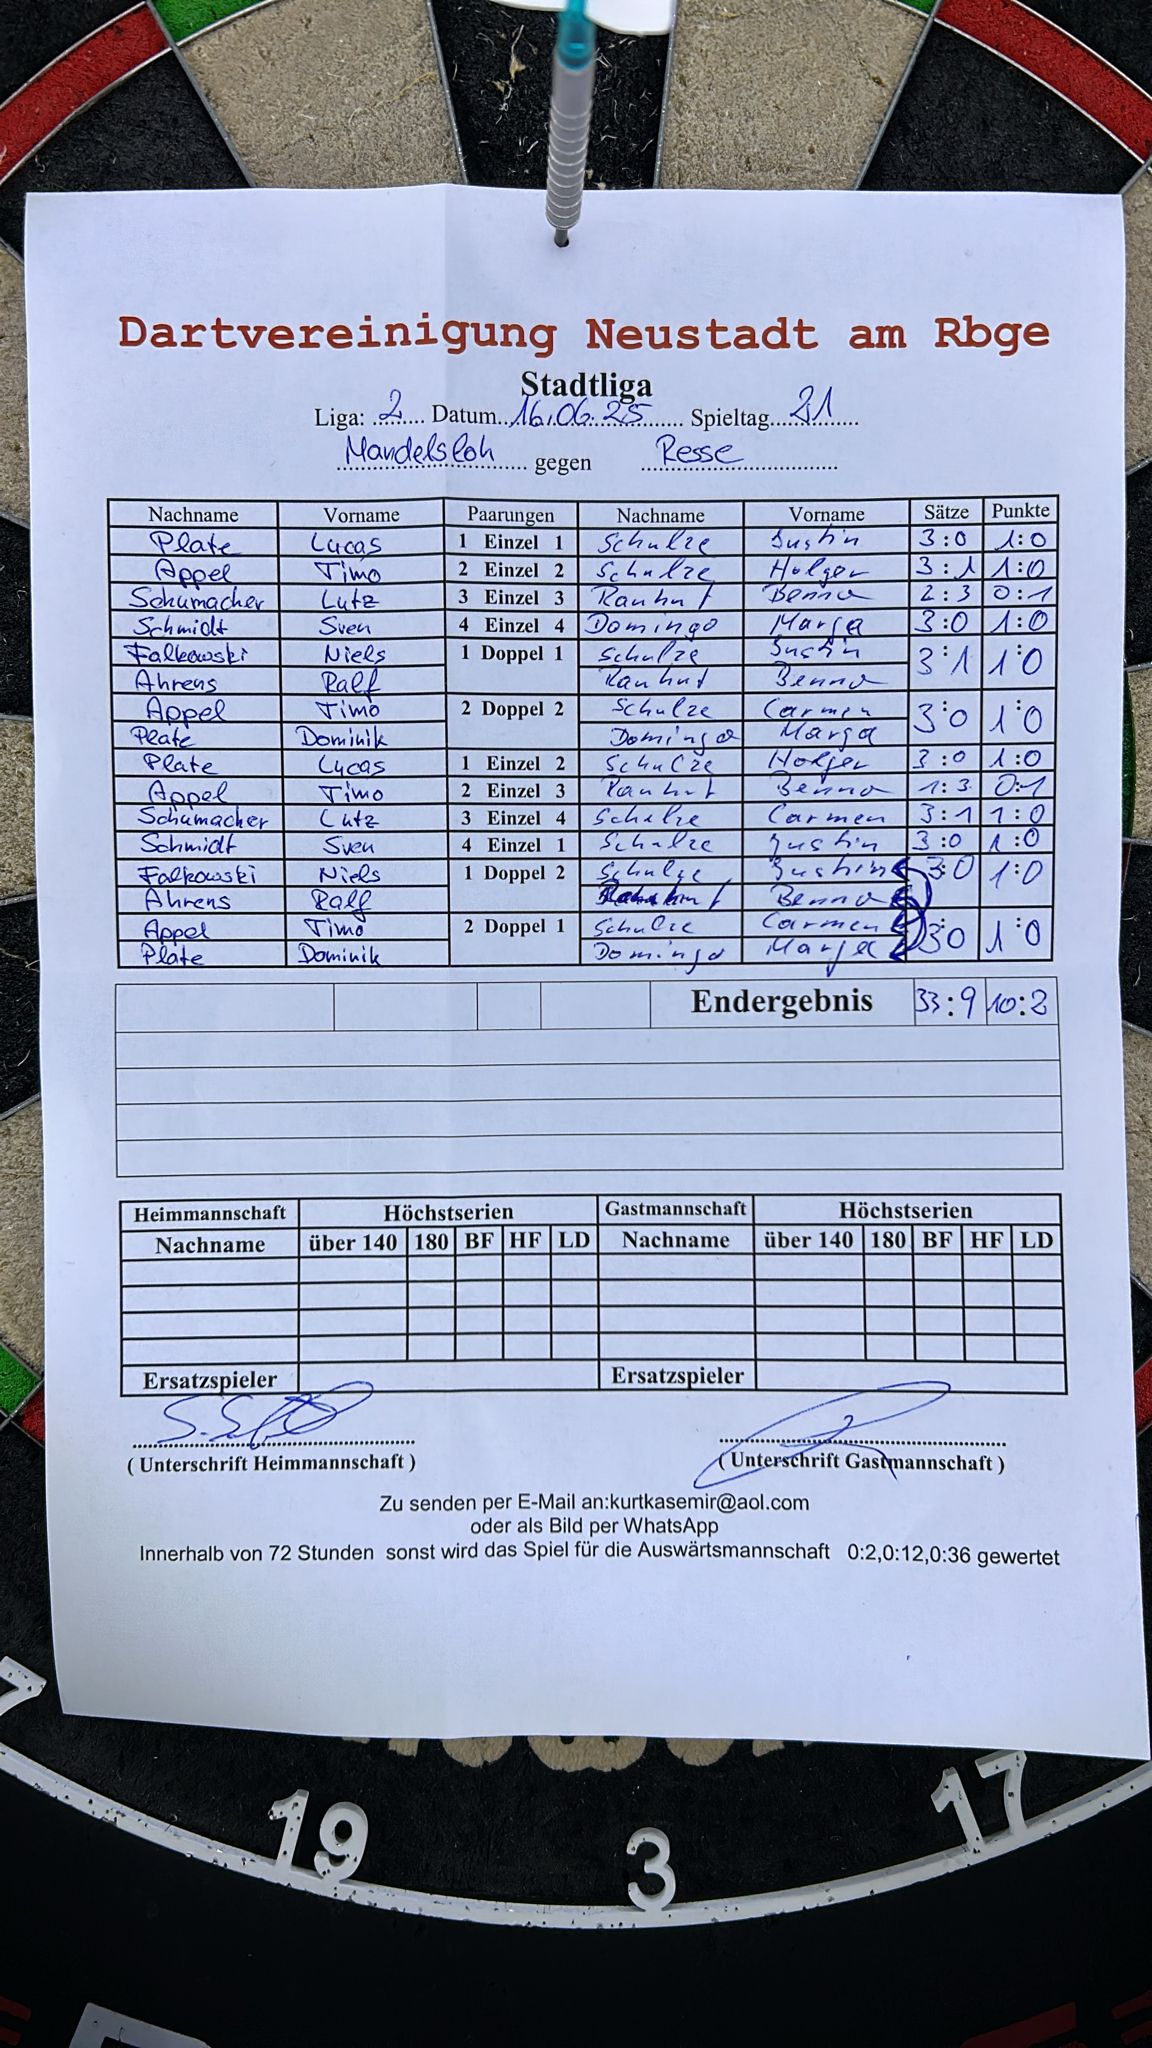 Dartvereinigung Neustadt am Rbge
Stadtliga
Liga: 2 Datum 16.06.25 Spieltag 21
Mandelsloh gegen Resse
Nachname Vorname Paarungen Nachname Vorname Sätze Punkte
Plate Lucas 1 Einzel 1 Schulze Justin 3:0 1:0
Appel Timo 2 Einzel 2 Schulze Holger 3:1 1:0
Schumacher Lutz 3 Einzel 3 Rauhut Benno 2:3 0:1
Schmidt Sven 4 Einzel 4 Domingo Marga 3:0 1:0
Falkowski Niels 1 Doppel 1 Schulze Justin 3:1 1:0
Ahrens Ralf Rauhut Benno
Appel Timo 2 Doppel 2 Schulze Carmen 3:0 1:0
Plate Dominik Domingo Marga
Plate Lucas 1 Einzel 2 Schulze Holger 3:0 1:0
Appel Timo 2 Einzel 3 Rauhut Benno 1:3 0:1
Schumacher Lutz 3 Einzel 4 Schulze Carmen 3:1 1:0
Schmidt Sven 4 Einzel 1 Schulze Justin 3:0 1:0
Falkowski Niels 1 Doppel 2 Schulze Justin 3:0 1:0
Ahrens Ralf Rauhut Benno
Appel Timo 2 Doppel 1 Schulze Carmen 3:0 1:0
Plate Dominik Domingo Marga
Endergebnis 33:9 10:2
Heimmannschaft Höchstserien Gastmannschaft Höchstserien
Nachname über 140 180 BF HF LD Nachname über 140 180 BF HF LD
Ersatzspieler Ersatzspieler
( Unterschrift Heimmannschaft ) ( Unterschrift Gastmannschaft )
Zu senden per E-Mail an:kurtkasemir@aol.com
oder als Bild per WhatsApp
Innerhalb von 72 Stunden sonst wird das Spiel für die Auswärtsmannschaft 0:2,0:12,0:36 gewertet
7 19 3 17